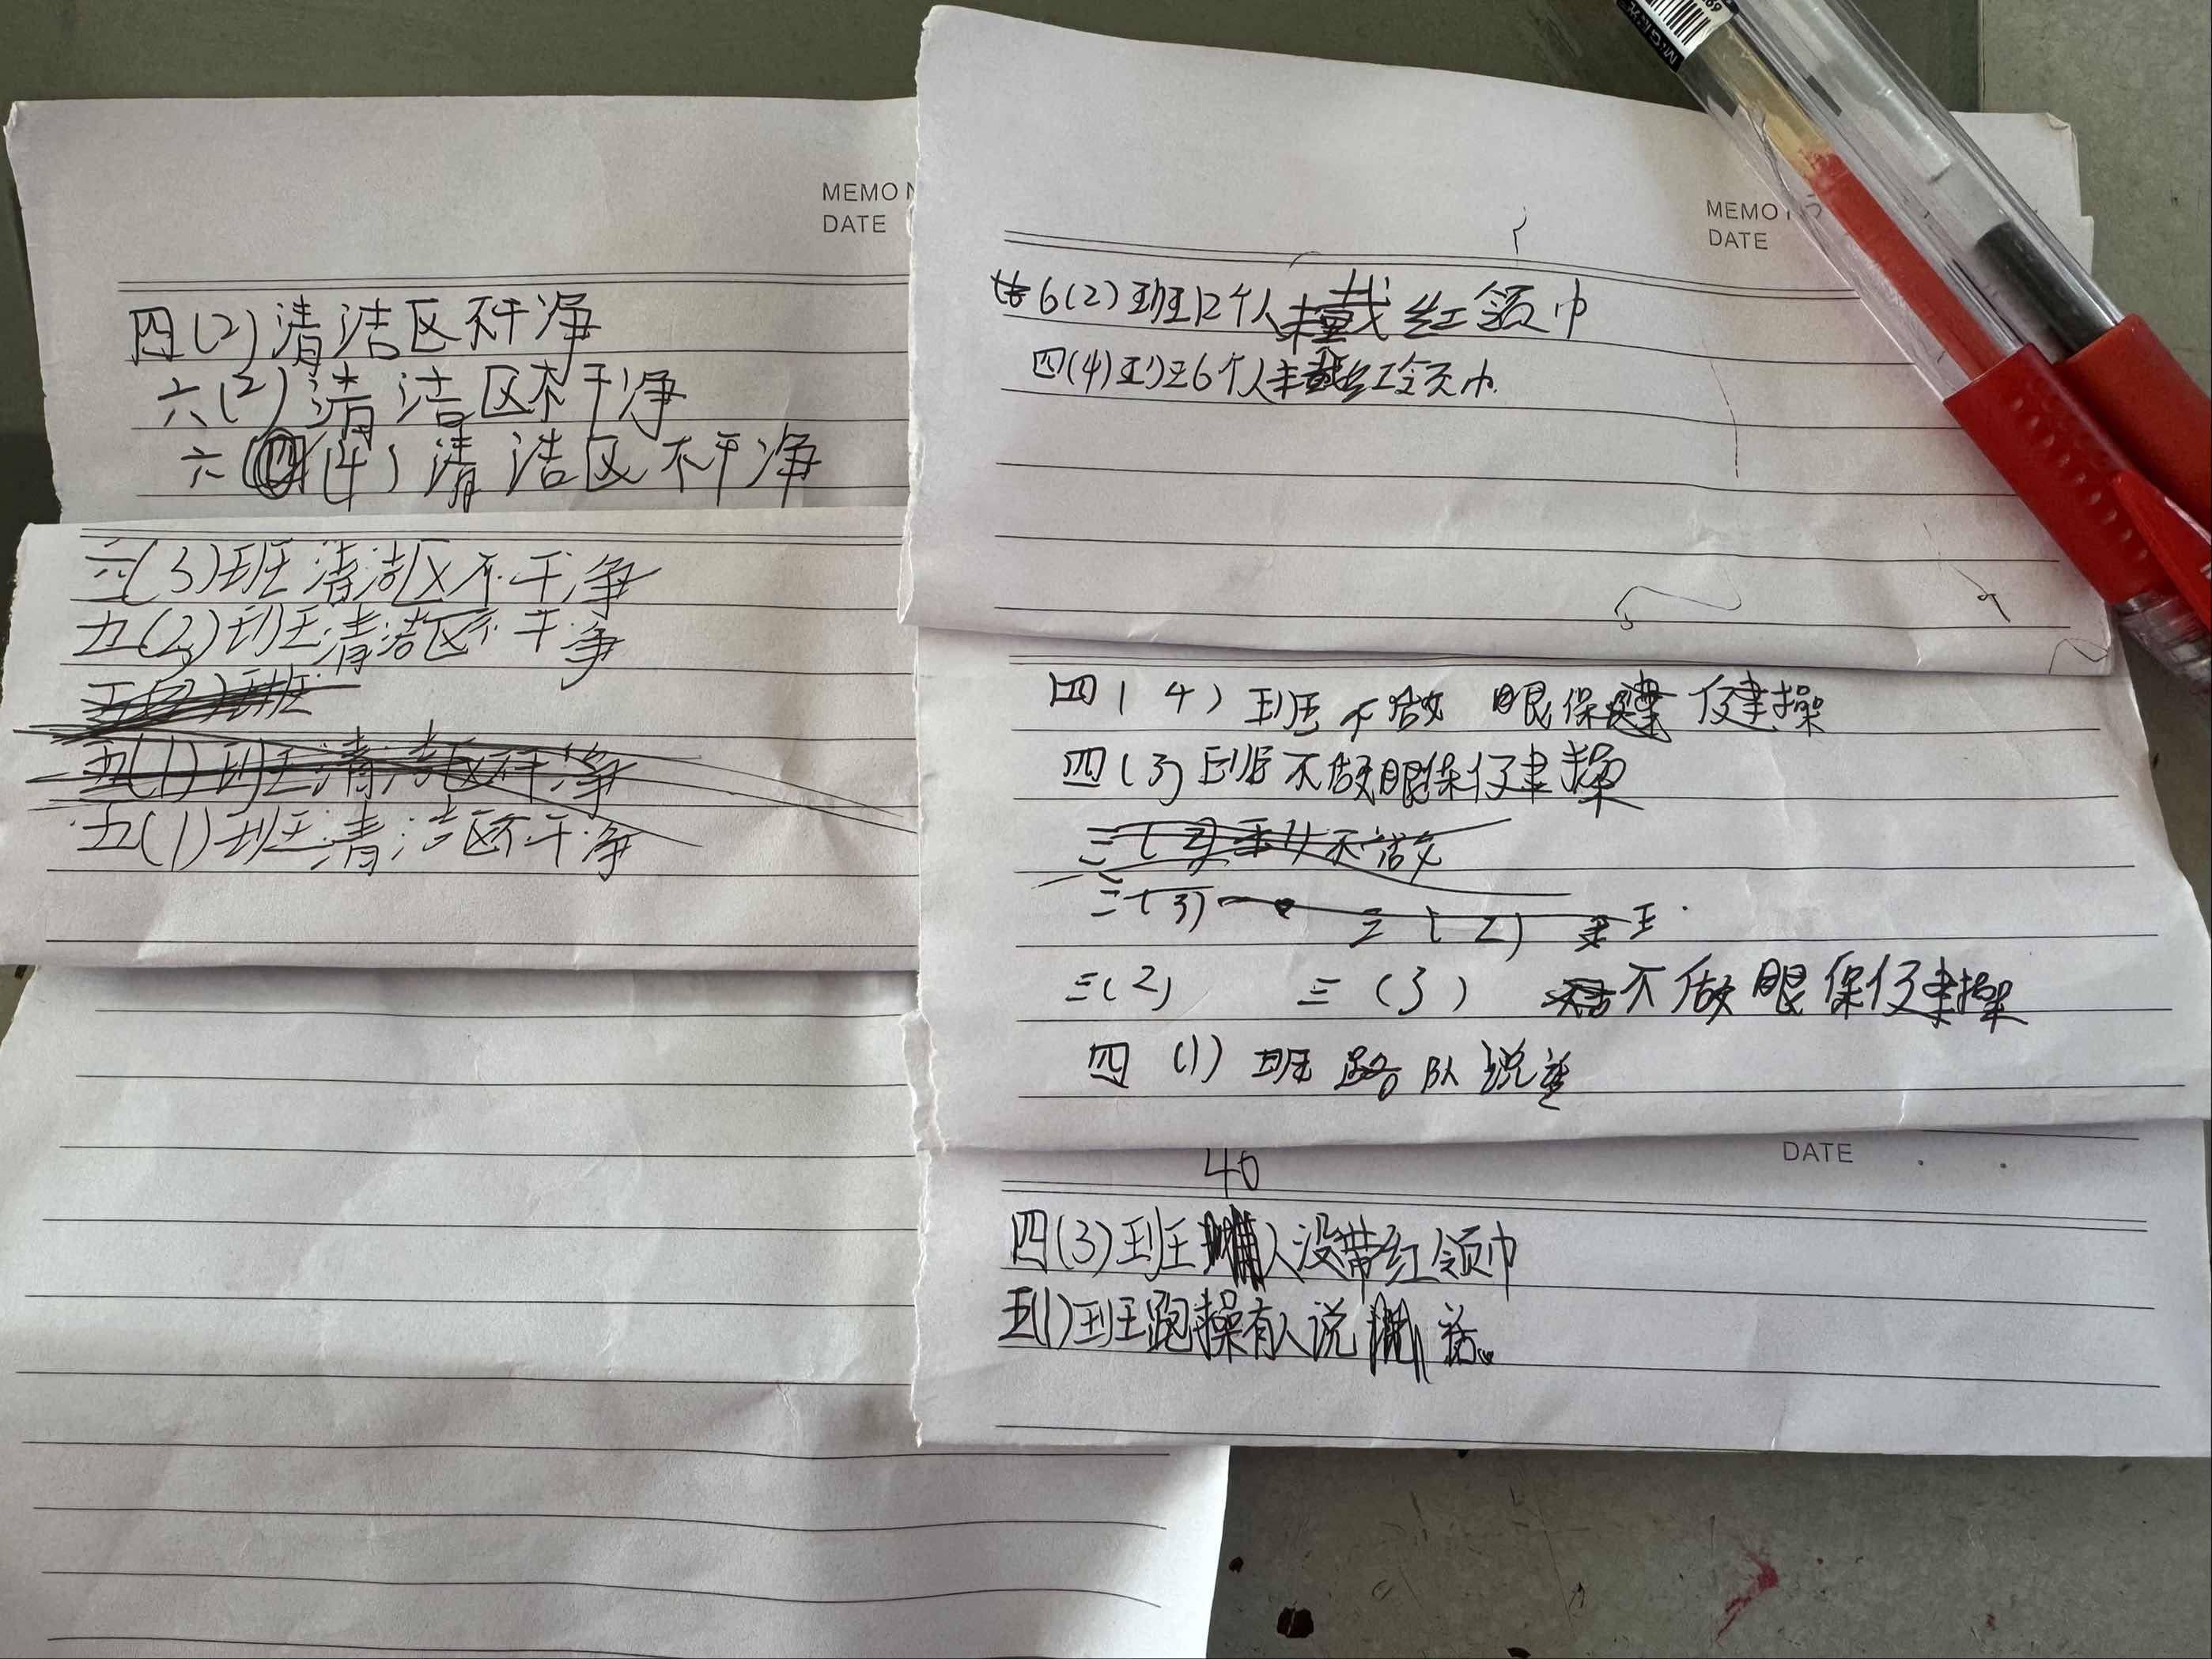 MEMO N
DATE
四(2)清洁区不干净
六(2)清洁区不干净
六(4)清洁区不干净
六(3)班清洁区不干净
五(2)班清洁区不干净
五(1)班清洁区不干净
五(1)班清洁区不干净
MEMO
DATE
6(2)班12个人未戴红领巾
四(4)班6个人未戴红领巾.
四(4)班不做眼保健操
四(3)班不做眼保健操
三(2)不做
三(3) 三(2)
三(2) 三(3) 不做眼保健操
四(1)班路队说
DATE
46
四(3)班人没带红领巾
五(1)班跑操有人说话。